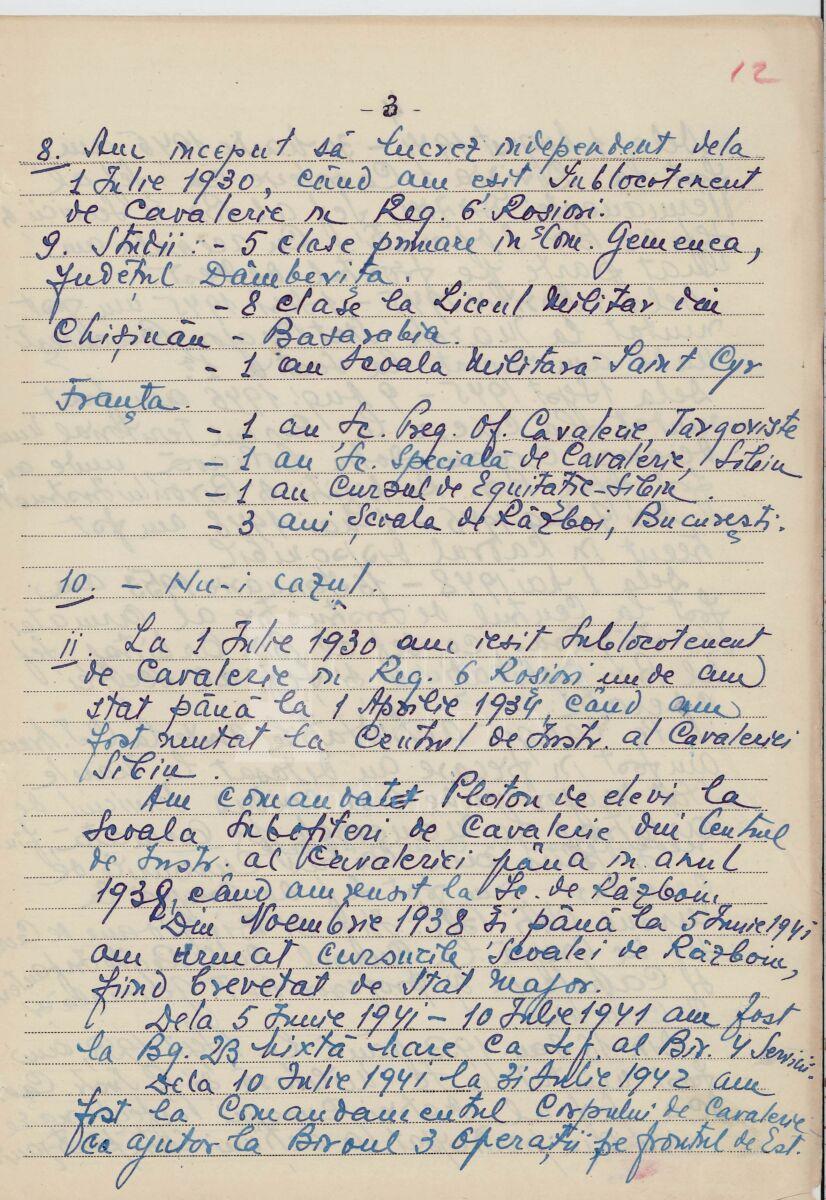 12
- 3 -
8. Am inceput să lucrez independent dela
1 Iulie 1930, când am eșit Sublocotenent
de Cavalerie in Reg. 6 Roșiori.
9. Studii: - 5 clase primare in Com. Gemenea,
Județul Dâmbovița.
- 8 clase la Liceul Militar din
Chișinău - Basarabia.
- 1 an Școala Militară Saint Cyr
Franța.
- 1 an Șc. Preg. Of. Cavalerie, Targoviște
- 1 an Șc. Specială de Cavalerie, Sibiu
- 1 an Cursul de Equitație - Sibiu.
- 3 ani Școala de Război, București.
10. - Nu-i cazul.
11. La 1 Iulie 1930 am iesit Sublocotenent
de Cavalerie in Reg. 6 Roșiori unde am
stat până la 1 Aprilie 1934, când am
fost mutat la Centrul de Instr. al Cavaleriei
Sibiu.
Am comandat Ploton de elevi la
Școala Subofițeri de Cavalerie din Centrul
de Instr. al Cavaleriei pâna in anul
1938, când am reusit la Șc. de Războiu
Din Noembrie 1938 și până la 5 Iunie 1941
am urmat cursurile Școalei de Războiu,
fiind brevetat de Stat Major.
Dela 5 Iunie 1941 - 10 Iulie 1941 am fost
la Bg. 2B Mixtă Mare ca Șef al Bir. 4 Servicii.
Dela 10 Iulie 1941 la 31 Iulie 1942 am
fost la Comandamentul Corpului de Cavalerie
ca ajutor la Biroul 3 Operații pe frontul de Est.